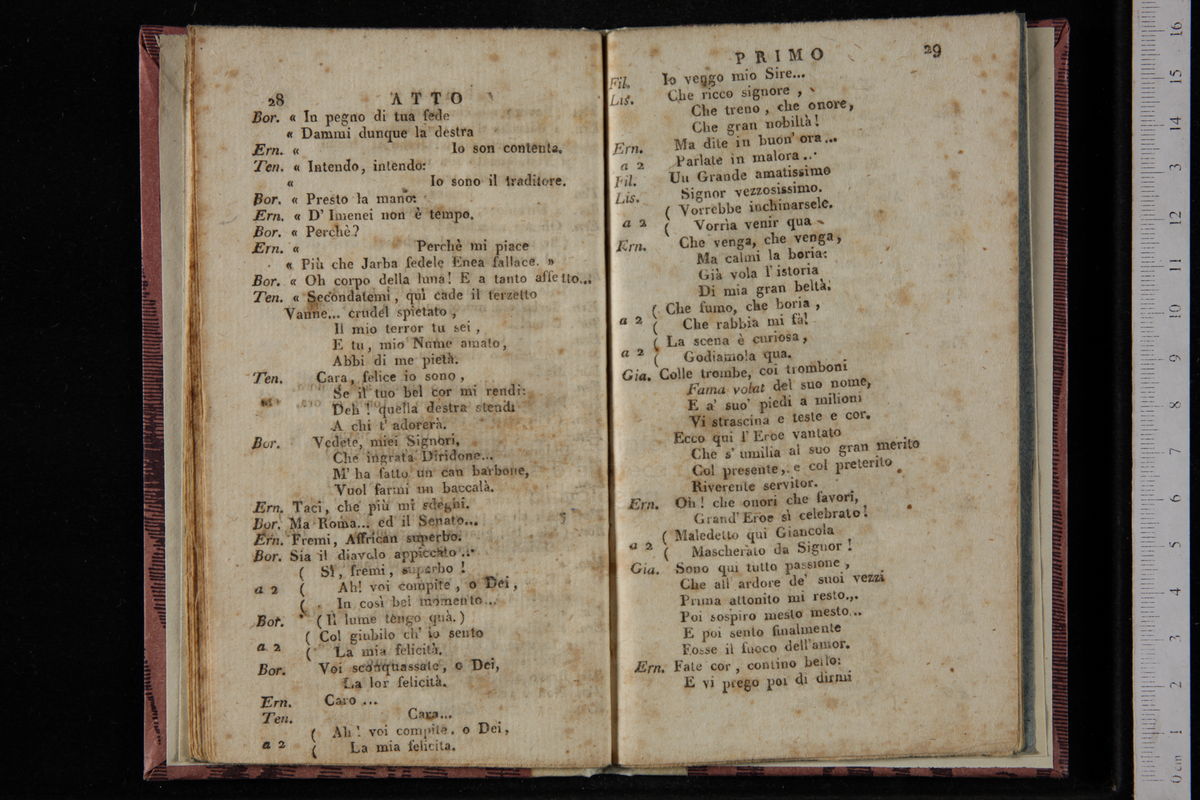 28 ATTO
Bor. « In pegno di tua fede
« Dammi dunque la destra
Ern. « Io son contenta.
Ten. « Intendo, intendo:
« Io sono il traditore.
Bor. « Presto la mano:
Ern. « D' Imenei non è tempo.
Bor. « Perchè?
Ern. « Perchè mi piace
« Più che Jarba fedele Enea fallace. »
Bor. « Oh corpo della luna! E a tanto affetto...
Ten. « Secondatemi, quì cade il terzetto
Vanne... crudel spietato,
Il mio terror tu sei,
E tu, mio Nume amato,
Abbi di me pietà.
Ten. Cara, felice io sono,
Se il tuo bel cor mi rendi:
Deh! quella destra stendi
A chi t' adorerà.
Bor. Vedete, miei Signori,
Che ingrata Diridone...
M' ha fatto un can barbone,
Vuol farmi un baccalà.
Ern. Taci, che più mi sdegni.
Bor. Ma Roma... ed il Senato...
Ern. Fremi, Affrican superbo.
Bor. Sia il diavolo appiccato...
( Sì, fremi, superbo!
a 2 ( Ah! voi compite, o Dei,
( In così bel momento...
Bor. (Il lume tengo quà.)
( Col giubilo ch' io sento
a 2 ( La mia felicità.
Bor. Voi sconquassate, o Dei,
La lor felicità.
Ern. Caro...
Ten. Cara...
( Ah! voi compite, o Dei,
a 2 ( La mia felicita.
PRIMO 29
Fil. Io vengo mio Sire...
Lis. Che ricco signore,
Che treno, che onore,
Che gran nobiltà!
Ern. Ma dite in buon' ora...
a 2 Parlate in malora...
Fil. Un Grande amatissimo
Lis. Signor vezzosissimo.
( Vorrebbe inchinarsele.
a 2 ( Vorrìa venir qua
Ern. Che venga, che venga,
Ma calmi la boria:
Già vola l' istoria
Di mia gran beltà.
( Che fumo, che boria,
a 2 ( Che rabbia mi fà!
( La scena è curiosa,
a 2 ( Godiamola qua.
Gia. Colle trombe, coi tromboni
Fama volat del suo nome,
E a' suo' piedi a milioni
Vi strascina e teste e cor.
Ecco qui l' Eroe vantato
Che s' umilia al suo gran merito
Col presente, e col preterito
Riverente servitor.
Ern. Oh! che onori che favori,
Grand' Eroe sì celebrato!
( Maledetto qui Giancola
a 2 ( Mascherato da Signor!
Gia. Sono qui tutto passione,
Che all' ardore de' suoi vezzi
Prima attonito mi resto...
Poi sospiro mesto mesto...
E poi sento finalmente
Fosse il fuoco dell'amor.
Ern. Fate cor, contino bello:
E vi prego poi di dirmi
0 cm 1 2 3 4 5 6 7 8 9 10 11 12 13 14 15 16